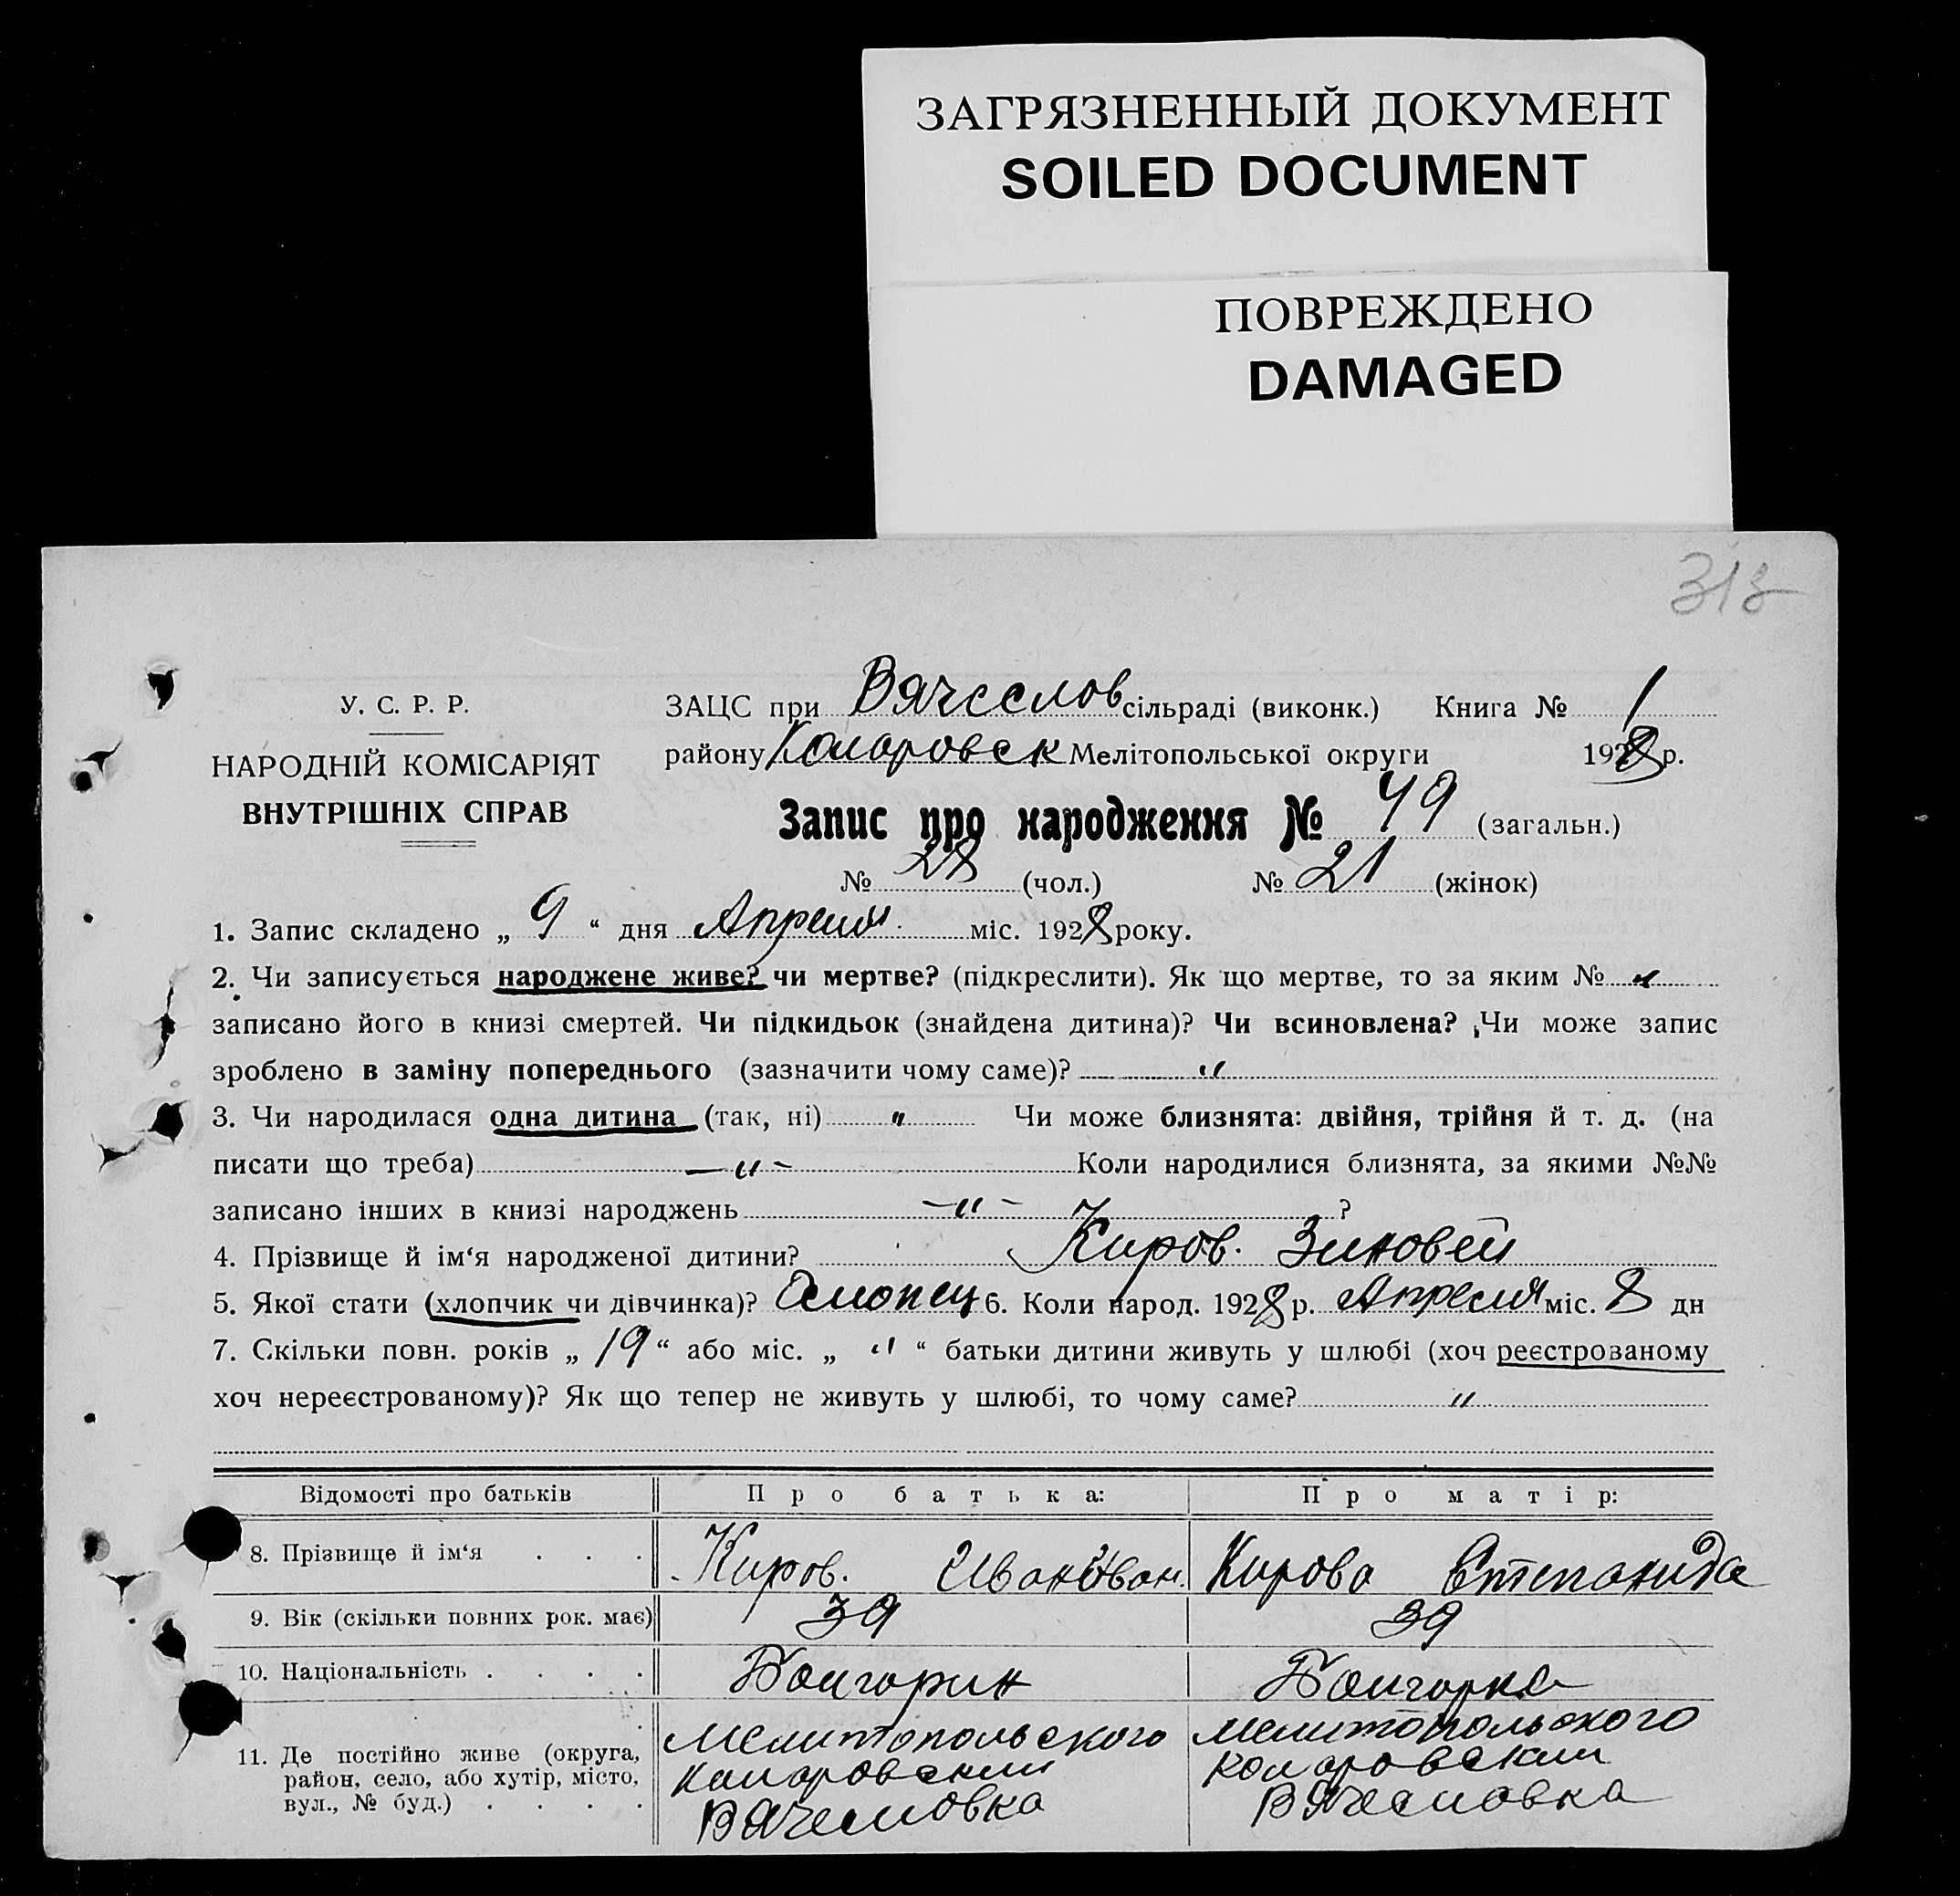 ЗАГРЯЗНЕННЫЙ ДОКУМЕНТ
SOILED DOCUMENT
ПОВРЕЖДЕНО
DAMAGED
313
У. С. Р. Р.
НАРОДНІЙ КОМІСАРІЯТ
ВНУТРІШНІХ СПРАВ
ЗАЦС при Вячеслов сільраді (виконк.) Книга № 1
району Коларовск Мелітопольської округи 1928 р.
Запис про народження № 49 (загальн.)
№ 28 (чол.) № 21 (жінок)
1. Запис складено „ 9 “ дня Апреля міс. 1928 року.
2. Чи записується народжене живе? чи мертве? (підкреслити). Як що мертве, то за яким № "
записано його в книзі смертей. Чи підкидьок (знайдена дитина)? Чи всиновлена? Чи може запис
зроблено в заміну попереднього (зазначити чому саме)? "
3. Чи народилася одна дитина (так, ні) " Чи може близнята: двійня, трійня й т. д. (на
писати що треба) — " — Коли народилися близнята, за якими №№
записано інших в книзі народжень — " — ?
4. Прізвище й ім‘я народженої дитини? Киров. Зиновей
5. Якої стати (хлопчик чи дівчинка)? 6. Коли народ. 1928 р. Апреля міс. 8 дн
7. Скільки повн. років „ 19 “ або міс. „ " “ батьки дитини живуть у шлюбі (хоч реєстрованому
хоч нереєстрованому)? Як що тепер не живуть у шлюбі, то чому саме? "
Відомості про батьків Про батька: Про матір:
8. Прізвище й ім‘я . . . Киров. Иван Иван. Кирова Степанида
9. Вік (скільки повних рок. має) 39 39
10. Національність . . . . Болгорин Болгорка
11. Де постійно живе (округа, район, село, або хутір, місто, вул., № буд.) . . . .
Мелитопольского
Коларовский
Вячесловка
Мелитопольского
Коларовский
Вячесловка